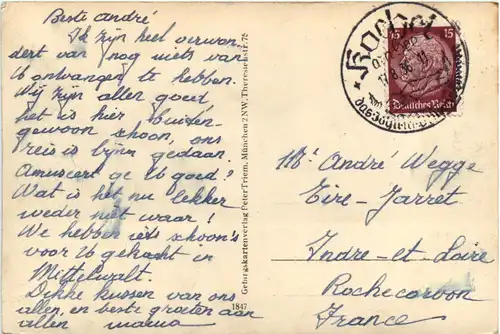 Beste André
Ik zijn heel verwon
dert van nog niets van
U ontvangen te hebben.
Wij zijn allen goed,
het is hier buiden-
gewoon schoon, ons
reis is bijna gedaan.
Amuseert ge U goed?
Wat is het nu lekker
weder niet waar!
We hebben iets schoon's
voor U gekocht in
Mittelwalt.
Dikke kussen van ons
allen, en beste groeten aan
allen mama
Gebirgskartenverlag Peter Triem, München 2 NW, Theresienstr. 75
1847
Kochel
15 15
Deutsches Reich
Mr André Wegge
Eire-Jarret
Indre-et-Loire
Rochecorbon
France